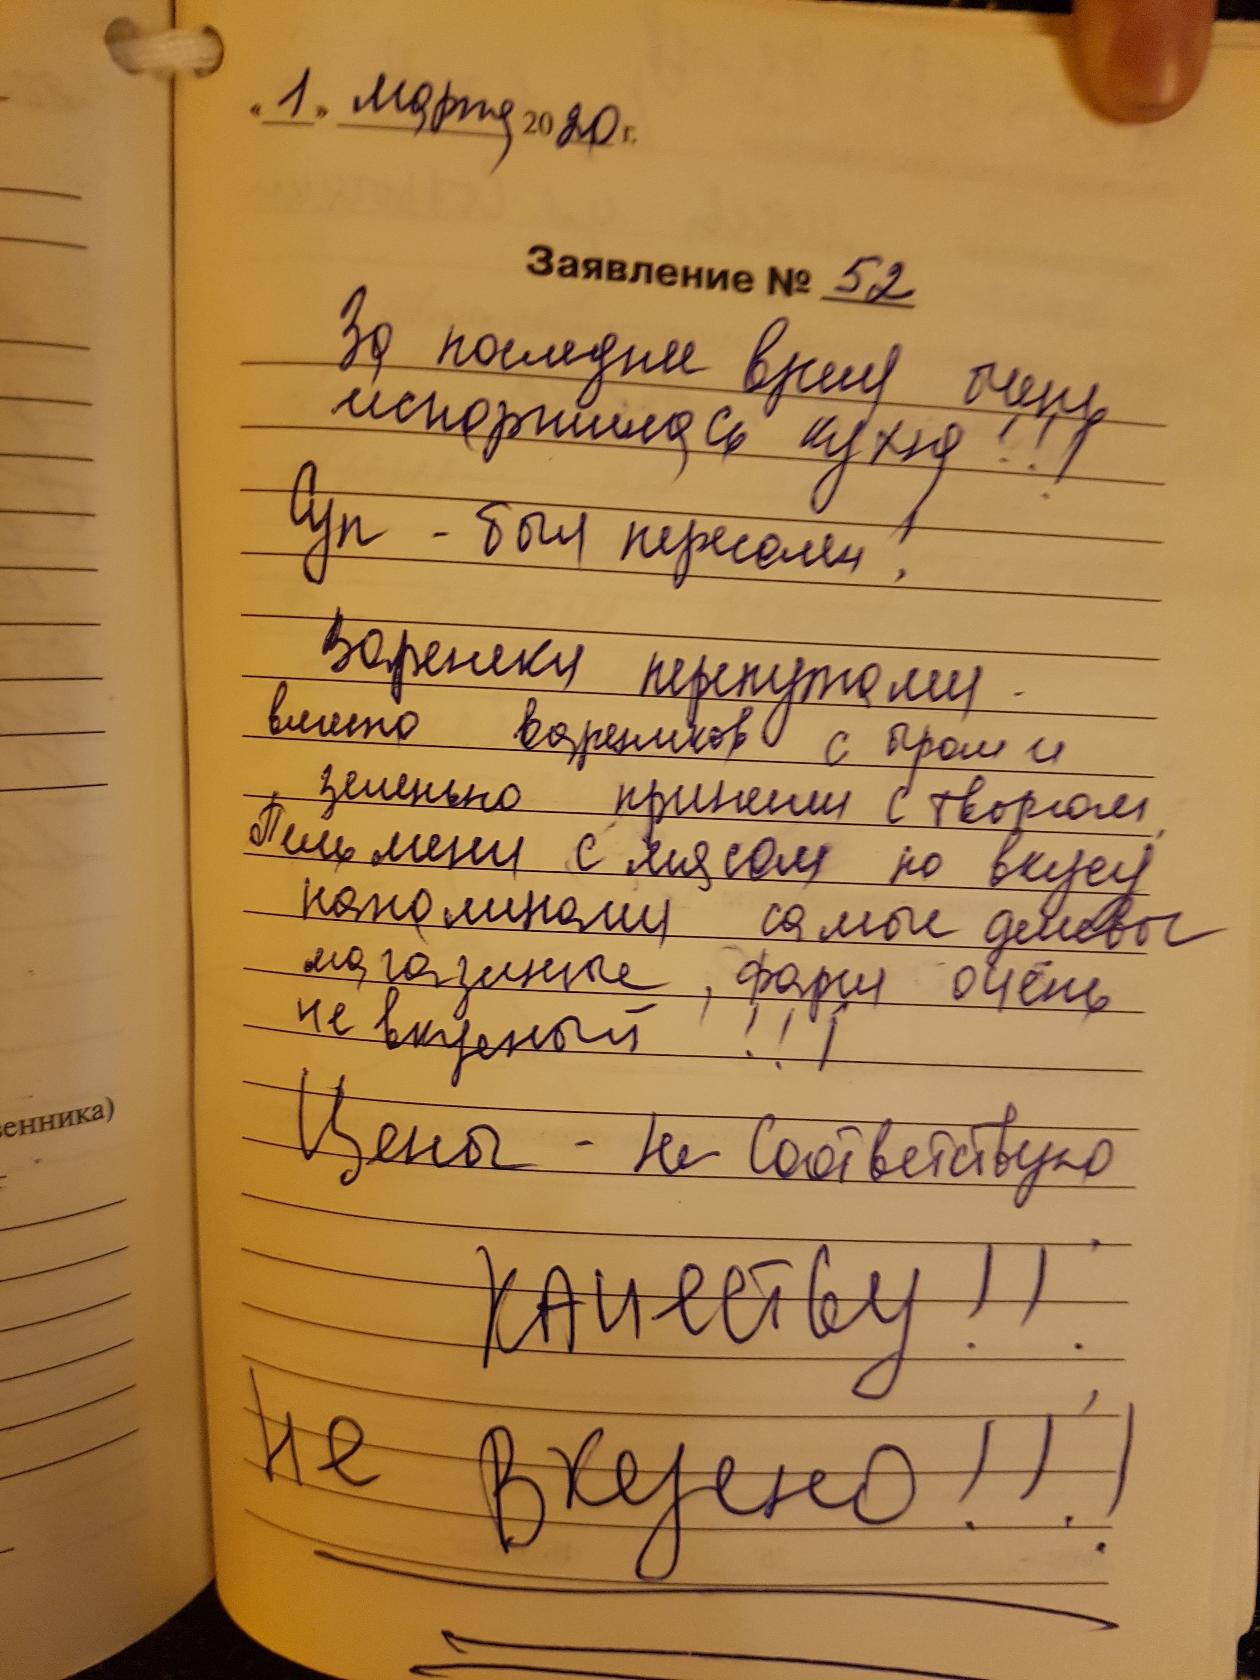 «1» марта 2020 г.
Заявление № 52
За последнее время очень
испортилась кухня!!!
Суп - был пересолен!
Вареники перепутали -
вместо вареников с сыром и
зеленью принесли с творогом,
Пельмени с мясом по вкусу
напоминали самые дешевые
магазинные, фарш очень
не вкусный !!!
Цены - не соответствую
качеству!!!
не вкусно!!!
венника)